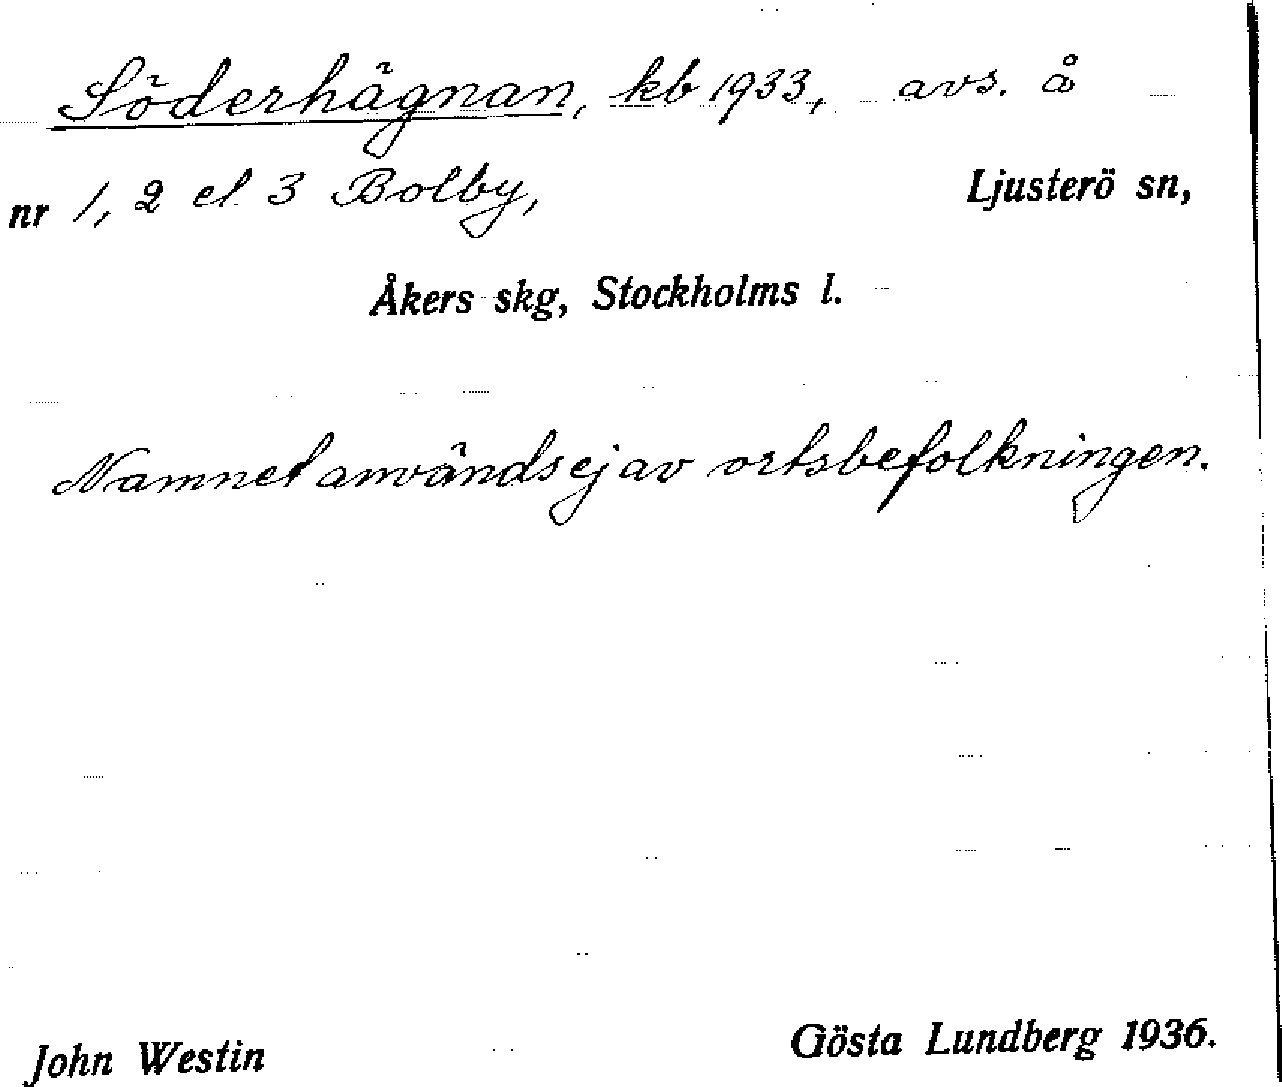 Söderhägnan, kb 1933, avs. å
nr 1, 2 el. 3 Bolby, Ljusterö sn,
Åkers skg, Stockholms l.
Namnet användes ej av ortsbefolkningen.
John Westin Gösta Lundberg 1936.